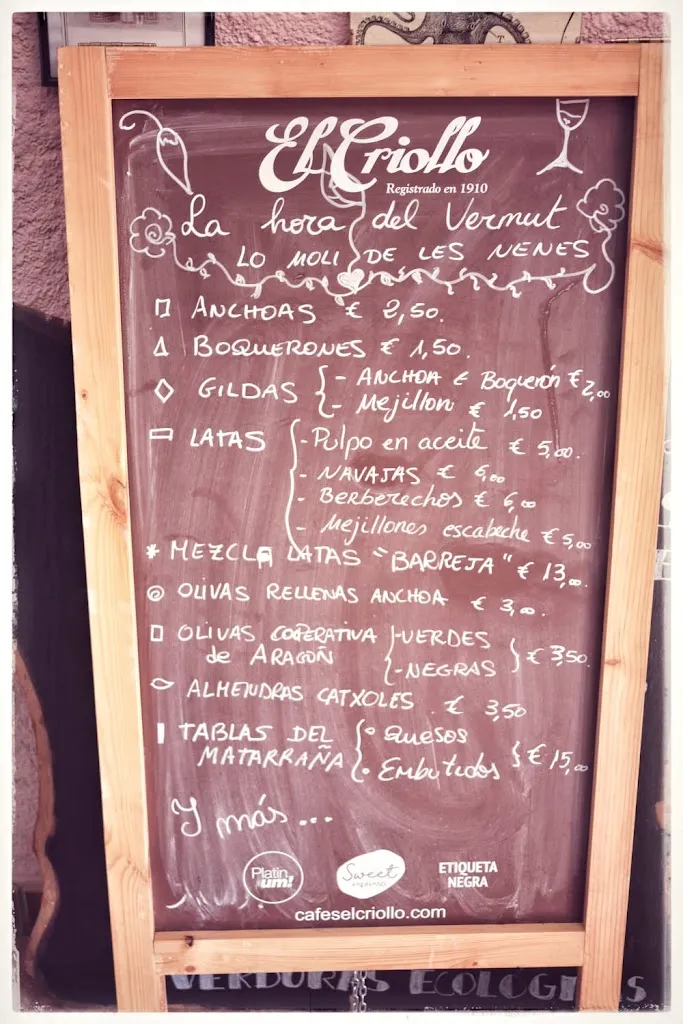 El Criollo
Registrado en 1910
La hora del Vermut
LO MOLI DE LES NENES
ANCHOAS € 2,50.
BOQUERONES € 1,50.
GILDAS { - ANCHOA E Boquerón € 2,00
- Mejillon € 1,50
LATAS { - Pulpo en aceite € 5,00.
- NAVAJAS € 6,00
- Berberechos € 6,00
- Mejillones escabeche € 5,00
* MEZCLA LATAS "BARREJA" € 13,00.
OLIVAS RELLENAS ANCHOA € 3,00.
OLIVAS COOPERATIVA { - VERDES
de ARAGOÑ - NEGRAS } € 3,50.
ALMENDRAS CATXOLES . € 3,50
TABLAS DEL { Quesos
MATARRAÑA Embutidos } € 15,00
Y más...
Platinum!
Sweet
ETIQUETA
NEGRA
cafeselcriollo.com
VERDURAS